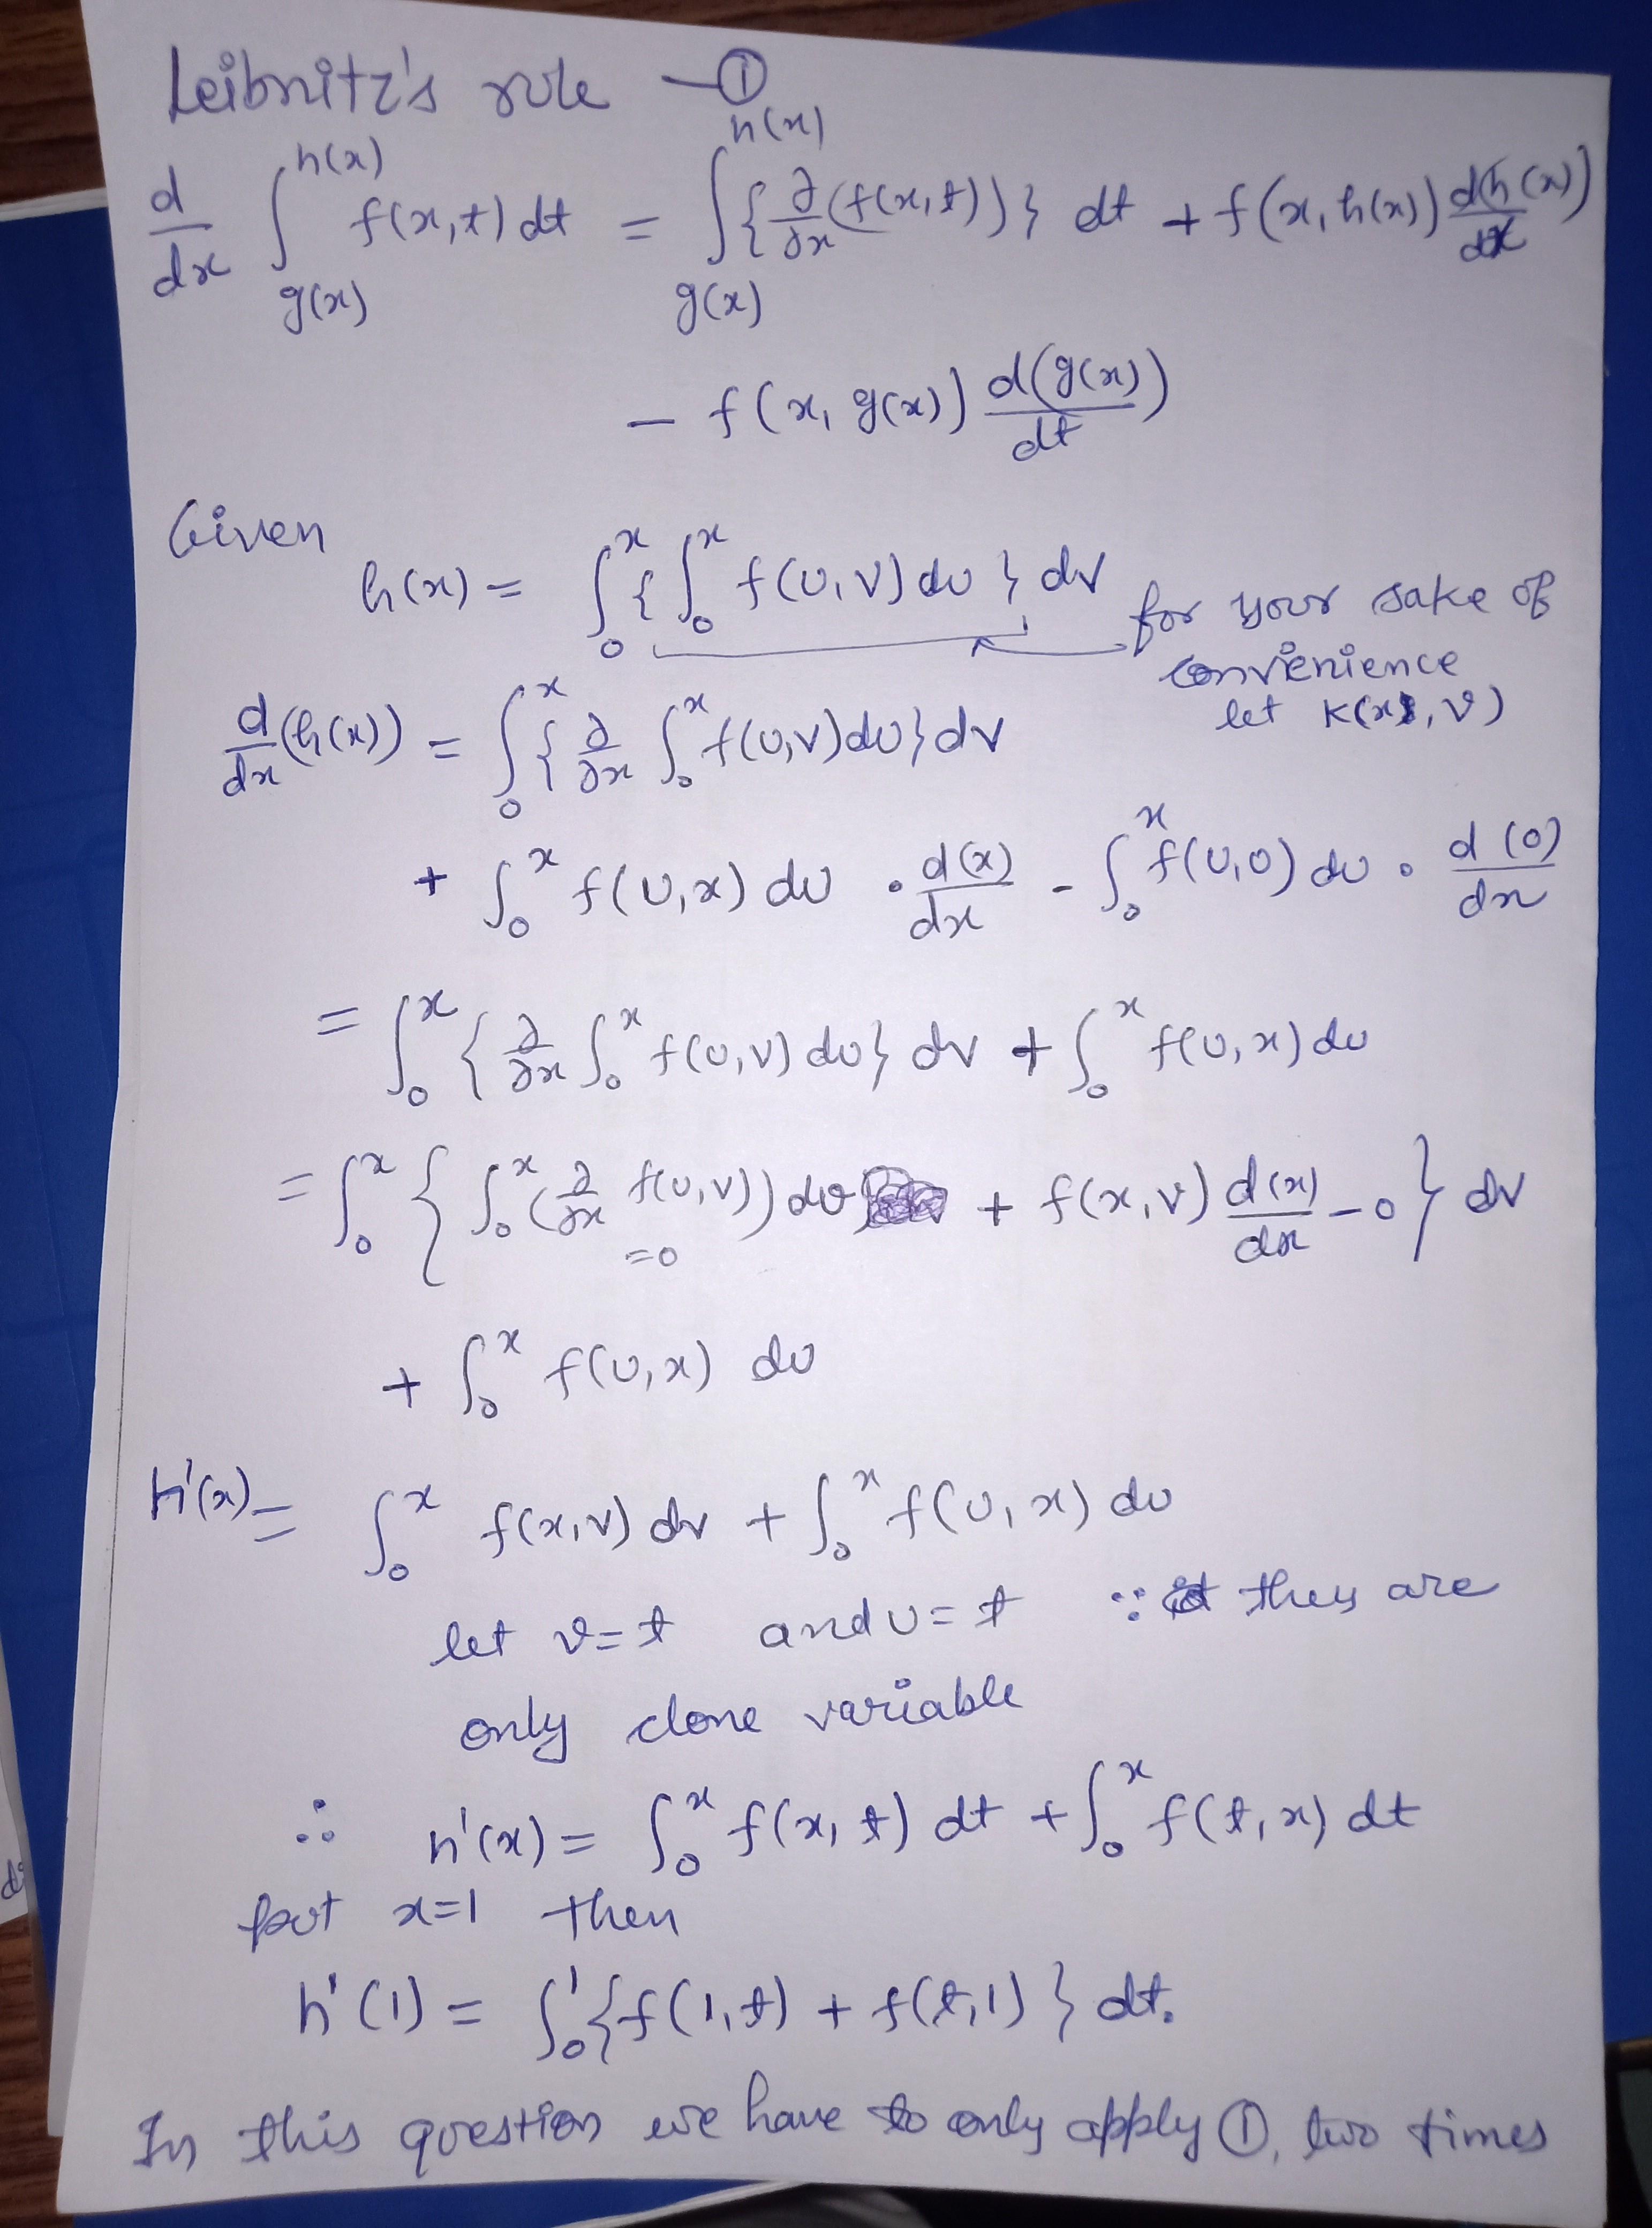 Leibnitz's rule —①
d/dx ∫_{g(x)}^{h(x)} f(x,t) dt = ∫_{g(x)}^{h(x)} {∂/∂x (f(x,t))} dt + f(x, h(x)) d(h(x))/dx
− f(x, g(x)) d(g(x))/dt
Given
h(x) = ∫_0^x {∫_0^x f(u,v) du} dv
for your sake of
convenience
let K(x, v)
d/dx (h(x)) = ∫_0^x {∂/∂x ∫_0^x f(u,v) du} dv
+ ∫_0^x f(u,x) du · d(x)/dx − ∫_0^x f(u,0) du · d(0)/dx
= ∫_0^x {∂/∂x ∫_0^x f(u,v) du} dv + ∫_0^x f(u,x) du
= ∫_0^x { ∫_0^x (∂/∂x f(u,v)) du + f(x,v) d(x)/dx − 0 } dv
=0
+ ∫_0^x f(u,x) du
h'(x) = ∫_0^x f(x,v) dv + ∫_0^x f(u,x) du
let v=t and u=t ∵ they are
only clone variable
∴ h'(x) = ∫_0^x f(x,t) dt + ∫_0^x f(t,x) dt
put x=1 then
h'(1) = ∫_0^1 {f(1,t) + f(t,1)} dt.
In this question we have to only apply ①, two times